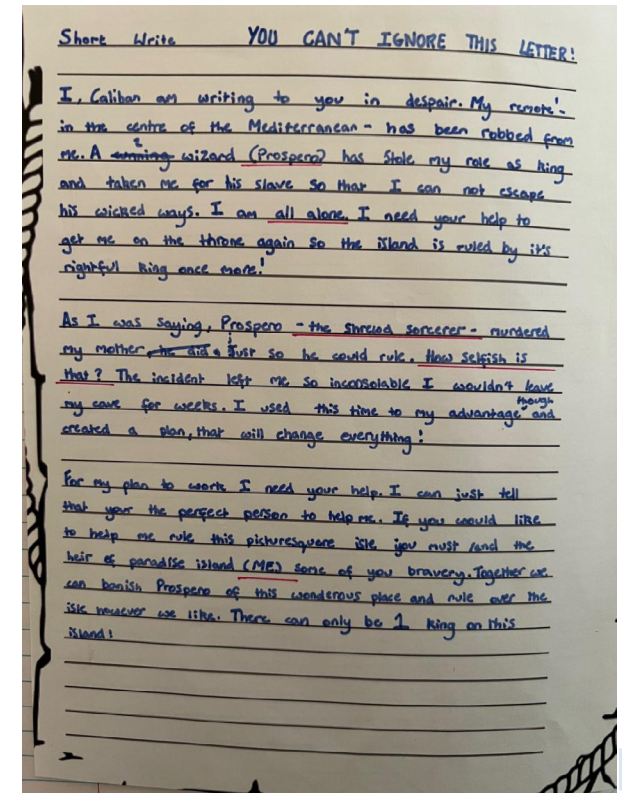 Short Write YOU CAN'T IGNORE THIS LETTER!
I, Caliban am writing to you in despair. My remote! -
in the centre of the Mediterranean - has been robbed from
me. A wizard (Prospero) has stole my role as king
and taken me for his slave so that I can not escape
his wicked ways. I am all alone. I need your help to
get me on the throne again so the island is ruled by it's
rightful king once more!
As I was saying, Prospero - the shrewd sorcerer - murdered
my mother he did. Just so he could rule. How selfish is
that? The incident left me so inconsolable I wouldn't leave
my cave for weeks. I used this time to my advantage though and
created a plan, that will change everything!
For my plan to work I need your help. I can just tell
that your the perfect person to help me. If you would like
to help me rule this picturesquere isle you must lend the
heir of paradise island (ME) some of you bravery. Together we
can banish Prospero of this wonderous place and rule over the
isle however we like. There can only be 1 king on this
island!